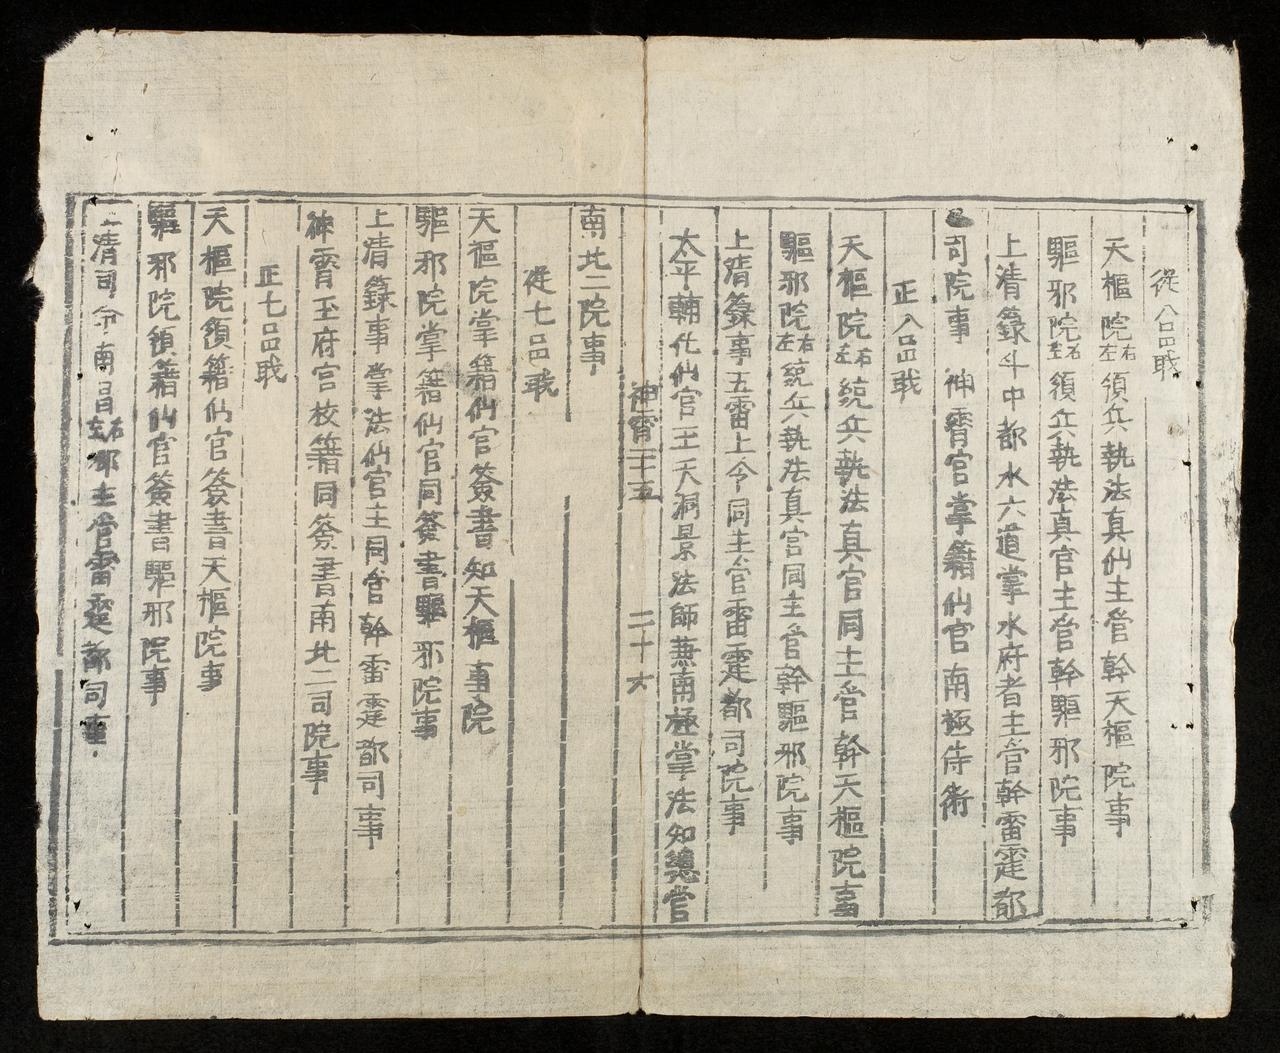 從八品戝
天樞院左右領兵執法真仙主管幹天樞院事
驅邪院左右領兵執法真官主管幹驅邪院事
上清籙斗中都水六道掌水府者主管幹雷霆都
司院事　神霄宮掌籍仙官南極侍衛
正八品戝
天樞院左右統兵執法真官同主管幹天樞院事
驅邪院左右統兵執法真官同主管幹驅邪院事
上清籙事五雷上令同主管雷霆都司院事
太平輔化仙官玉天洞景法師兼南極掌法知總管
神霄二十五　二十六
南北二院事
從七品戝
天樞院掌籍仙官簽書知天樞事院
驅邪院掌籍仙官同簽書驅邪院事
上清籙事掌法仙官主同管幹雷霆都司事
神霄玉府宮校籍同簽書南北二司院事
正七品戝
天樞院領籍仙官簽書天樞院事
驅邪院領籍仙官簽書驅邪院事
上清司命南昌左右郎主管雷霆都司事